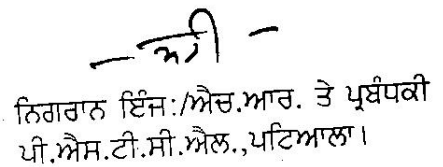 ਨਿਗਰਾਨ ਇੰਜ:/ਐਚ.ਆਰ. ਤੇ ਪ੍ਰਬੰਧਕੀ
ਪੀ.ਐਸ.ਟੀ.ਸੀ.ਐਲ.,ਪਟਿਆਲਾ।